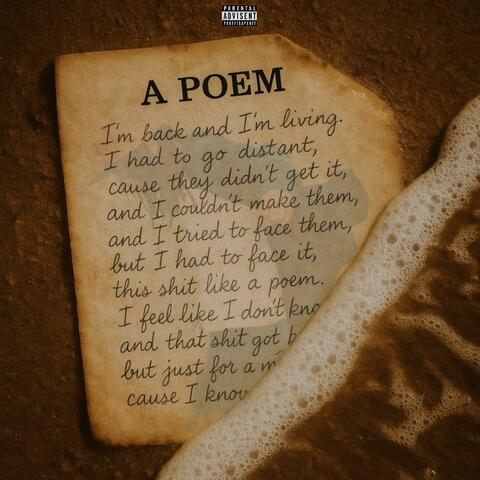 PARENTAL
ADVISENT
A POEM
I'm back and I'm living.
I had to go distant,
cause they didn't get it,
and I couldn't make them,
and I tried to face them,
but I had to face it,
this shit like a poem.
I feel like I don't
and that shit got
but just for a
cause I